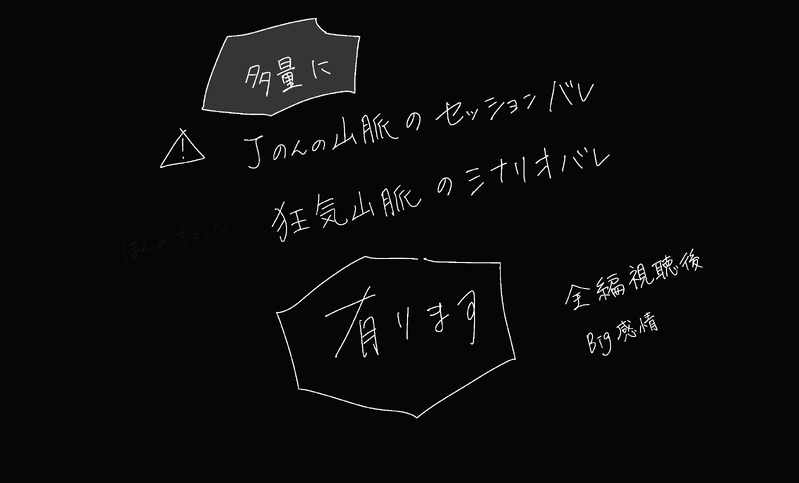 多量に
⚠ Jのんの山脈のセッションバレ
ほんのちょっぴり 狂気山脈のシナリオバレ
有ります
全編視聴後
Big感情